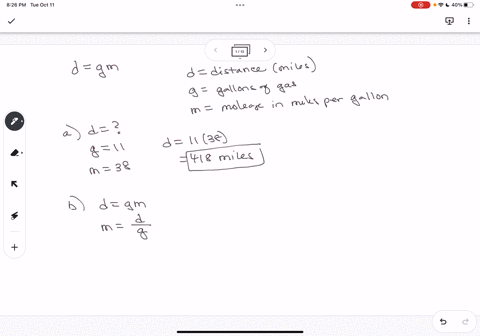 8:26 PM Tue Oct 11
40%
1/18
d = gm
d = distance (miles)
g = gallons of gas
m = mileage in miles per gallon
a) d = ?
g = 11
m = 38
d = 11(38)
= 418 miles
b) d = gm
m = d/g